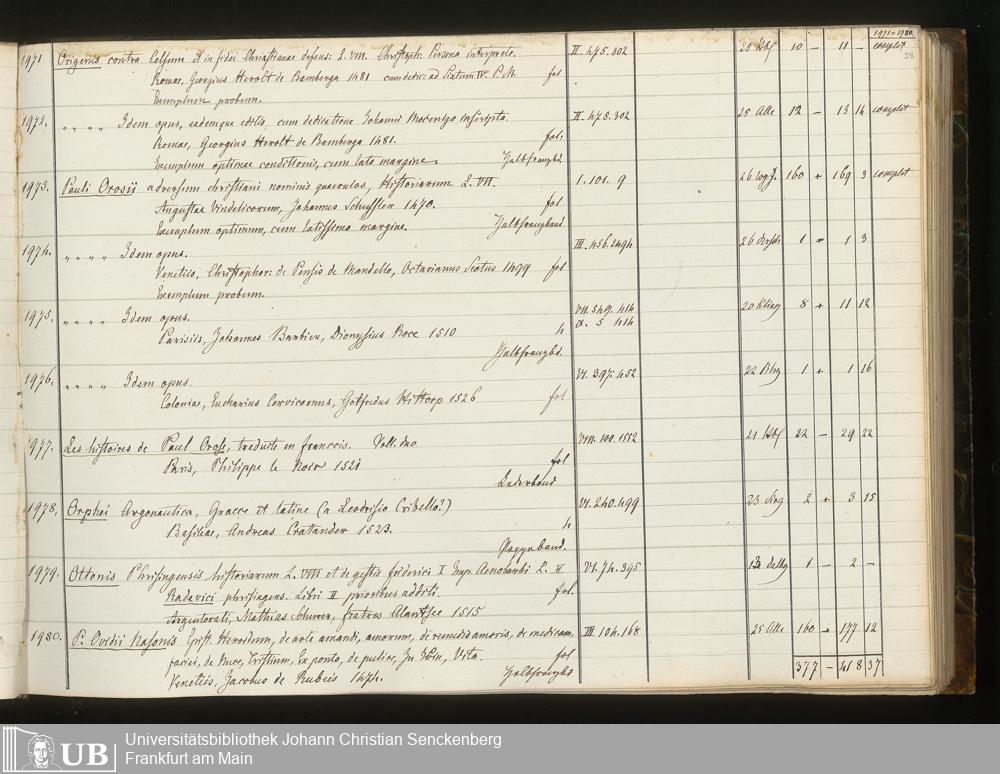 1971–1980.
1971 Origenis contra Celsum et in fidei Christianae defens: L. VIII. Christoph: Persona interprete. II. 475. 302 25 10 – 11 – complet
Romae, Georgius Herolt de Bamberga 1481 cum dedic: ad Sixtum IV. P. M. fol
Exemplum probum.
1972. „ „ „ „ Idem opus, eademque editio, cum dedicatione Johanni Mocenigo inscripta. II. 475. 302 25 12 – 13 14 complet
Romae, Georgius Herolt de Bamberga 1481. fol:
Exemplum optimae conditionis, cum lato margine. Halbfranzbd
1973. Pauli Orosii adversum christiani nominis quaerulos, Historiarum L. VII. 1. 101. 9 26 160 + 169 3 complet
Augustae Vindelicorum, Johannes Schussler 1470. fol
Exemplum optimum, cum latissimo margine. Halbfranzband
1974. „ „ „ „ Idem opus. III. 456. 2494 26 1 – 1 3
Venetiis, Christophor: de Pensis de Mandello, Octavianus Scotus 1499 fol
Exemplum probum.
1975. „ „ „ „ Idem opus. VII. 549. 414 20 8 + 11 12
Parisiis, Johannes Barbier, Dionysius Roce 1510 4 X. 5 414
Halbfranzbd.
1976. „ „ „ „ Idem opus. VI. 397. 452 22 1 + 1 16
Coloniae, Eucharius Cervicornus, Gotfridus Hittorp 1526 fol
1977. Les histoires de Paul Orose, traduite en francois. Voll. duo VIII. 100. 1552 21 22 – 29 22
Paris, Philippe le Noir 1521 fol
Lederband
1978. Orphei Argonautica, Graece et latine (a Leodrisio Cribello?) VI. 240. 499 23 2 + 3 15
Basiliae, Andreas Cratander 1523. 4
Pappband.
1979. Ottonis Phrisingensis historiarum L. VIII et de gestis friderici I Imp. Aenobarbi L. II VI. 74. 395 1 – 2 –
Radevici phrisingens. Libri II prioribus additi. fol.
Argentorati, Mathias Schurer, fratres Alantsee 1515
1980. P. Ovidii Nasonis Epist. Heroidum, de arte amandi, amorum, de remedio amoris, de medicam. III 104. 168 25 160 + 177 12
faciei, de Nuce, Tristium, Ex ponto, de pulice, In Ibin, Vita. fol
Venetiis, Jacobus de Rubeis 1474. Halbfranzbd
377 – 418 37
UB
Universitätsbibliothek Johann Christian Senckenberg
Frankfurt am Main